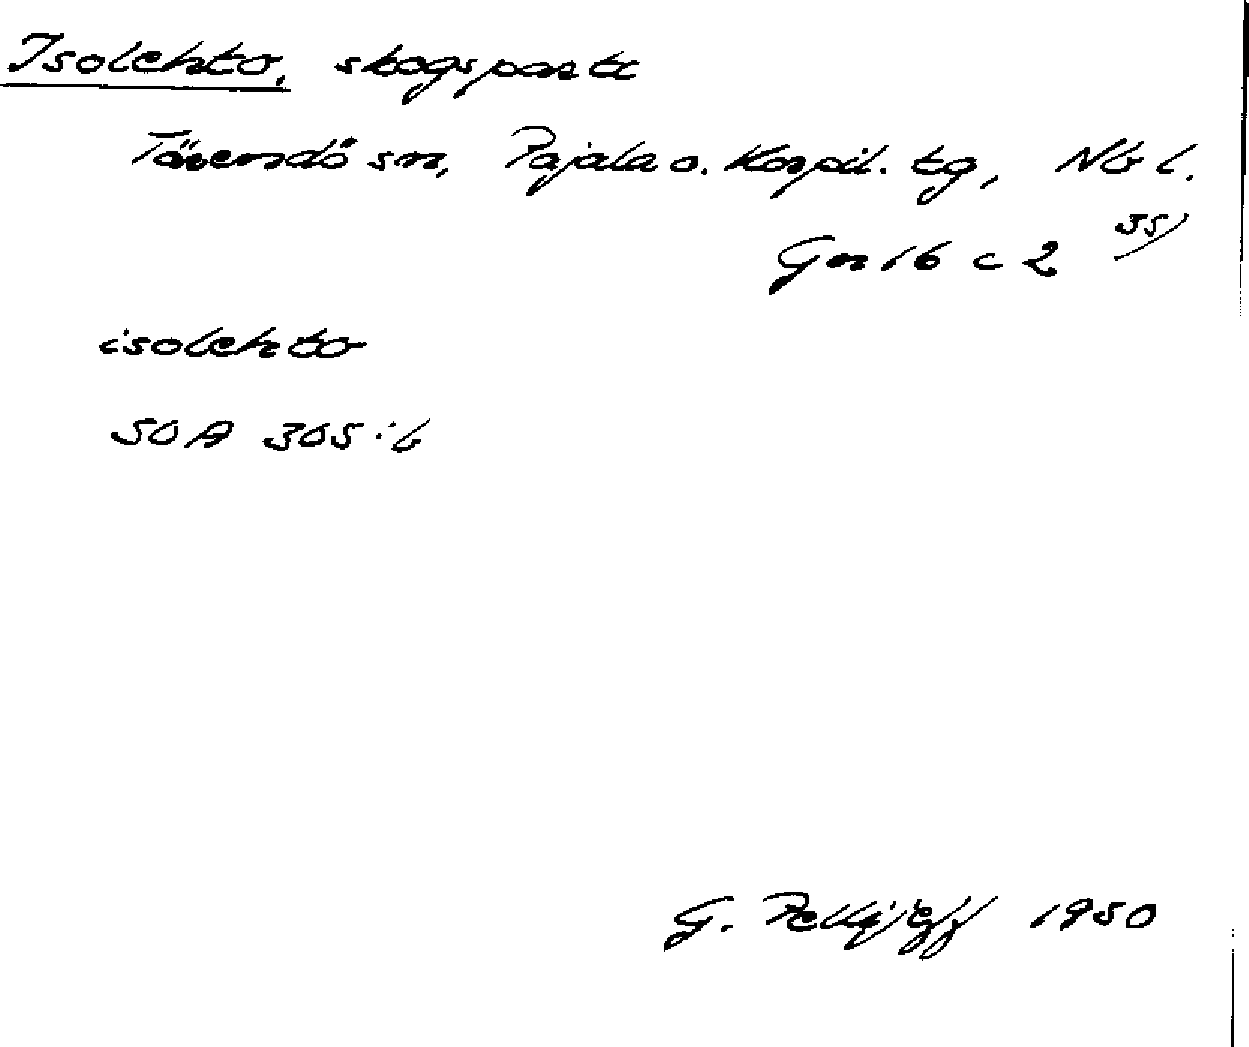 Isolehto, skogsparti
Tärendö sn, Pajala o. Korpil. tg, Nb l.
Gn 16 c 2 35)
isolehto
SOA 305:6
G. Pellijeff 1950